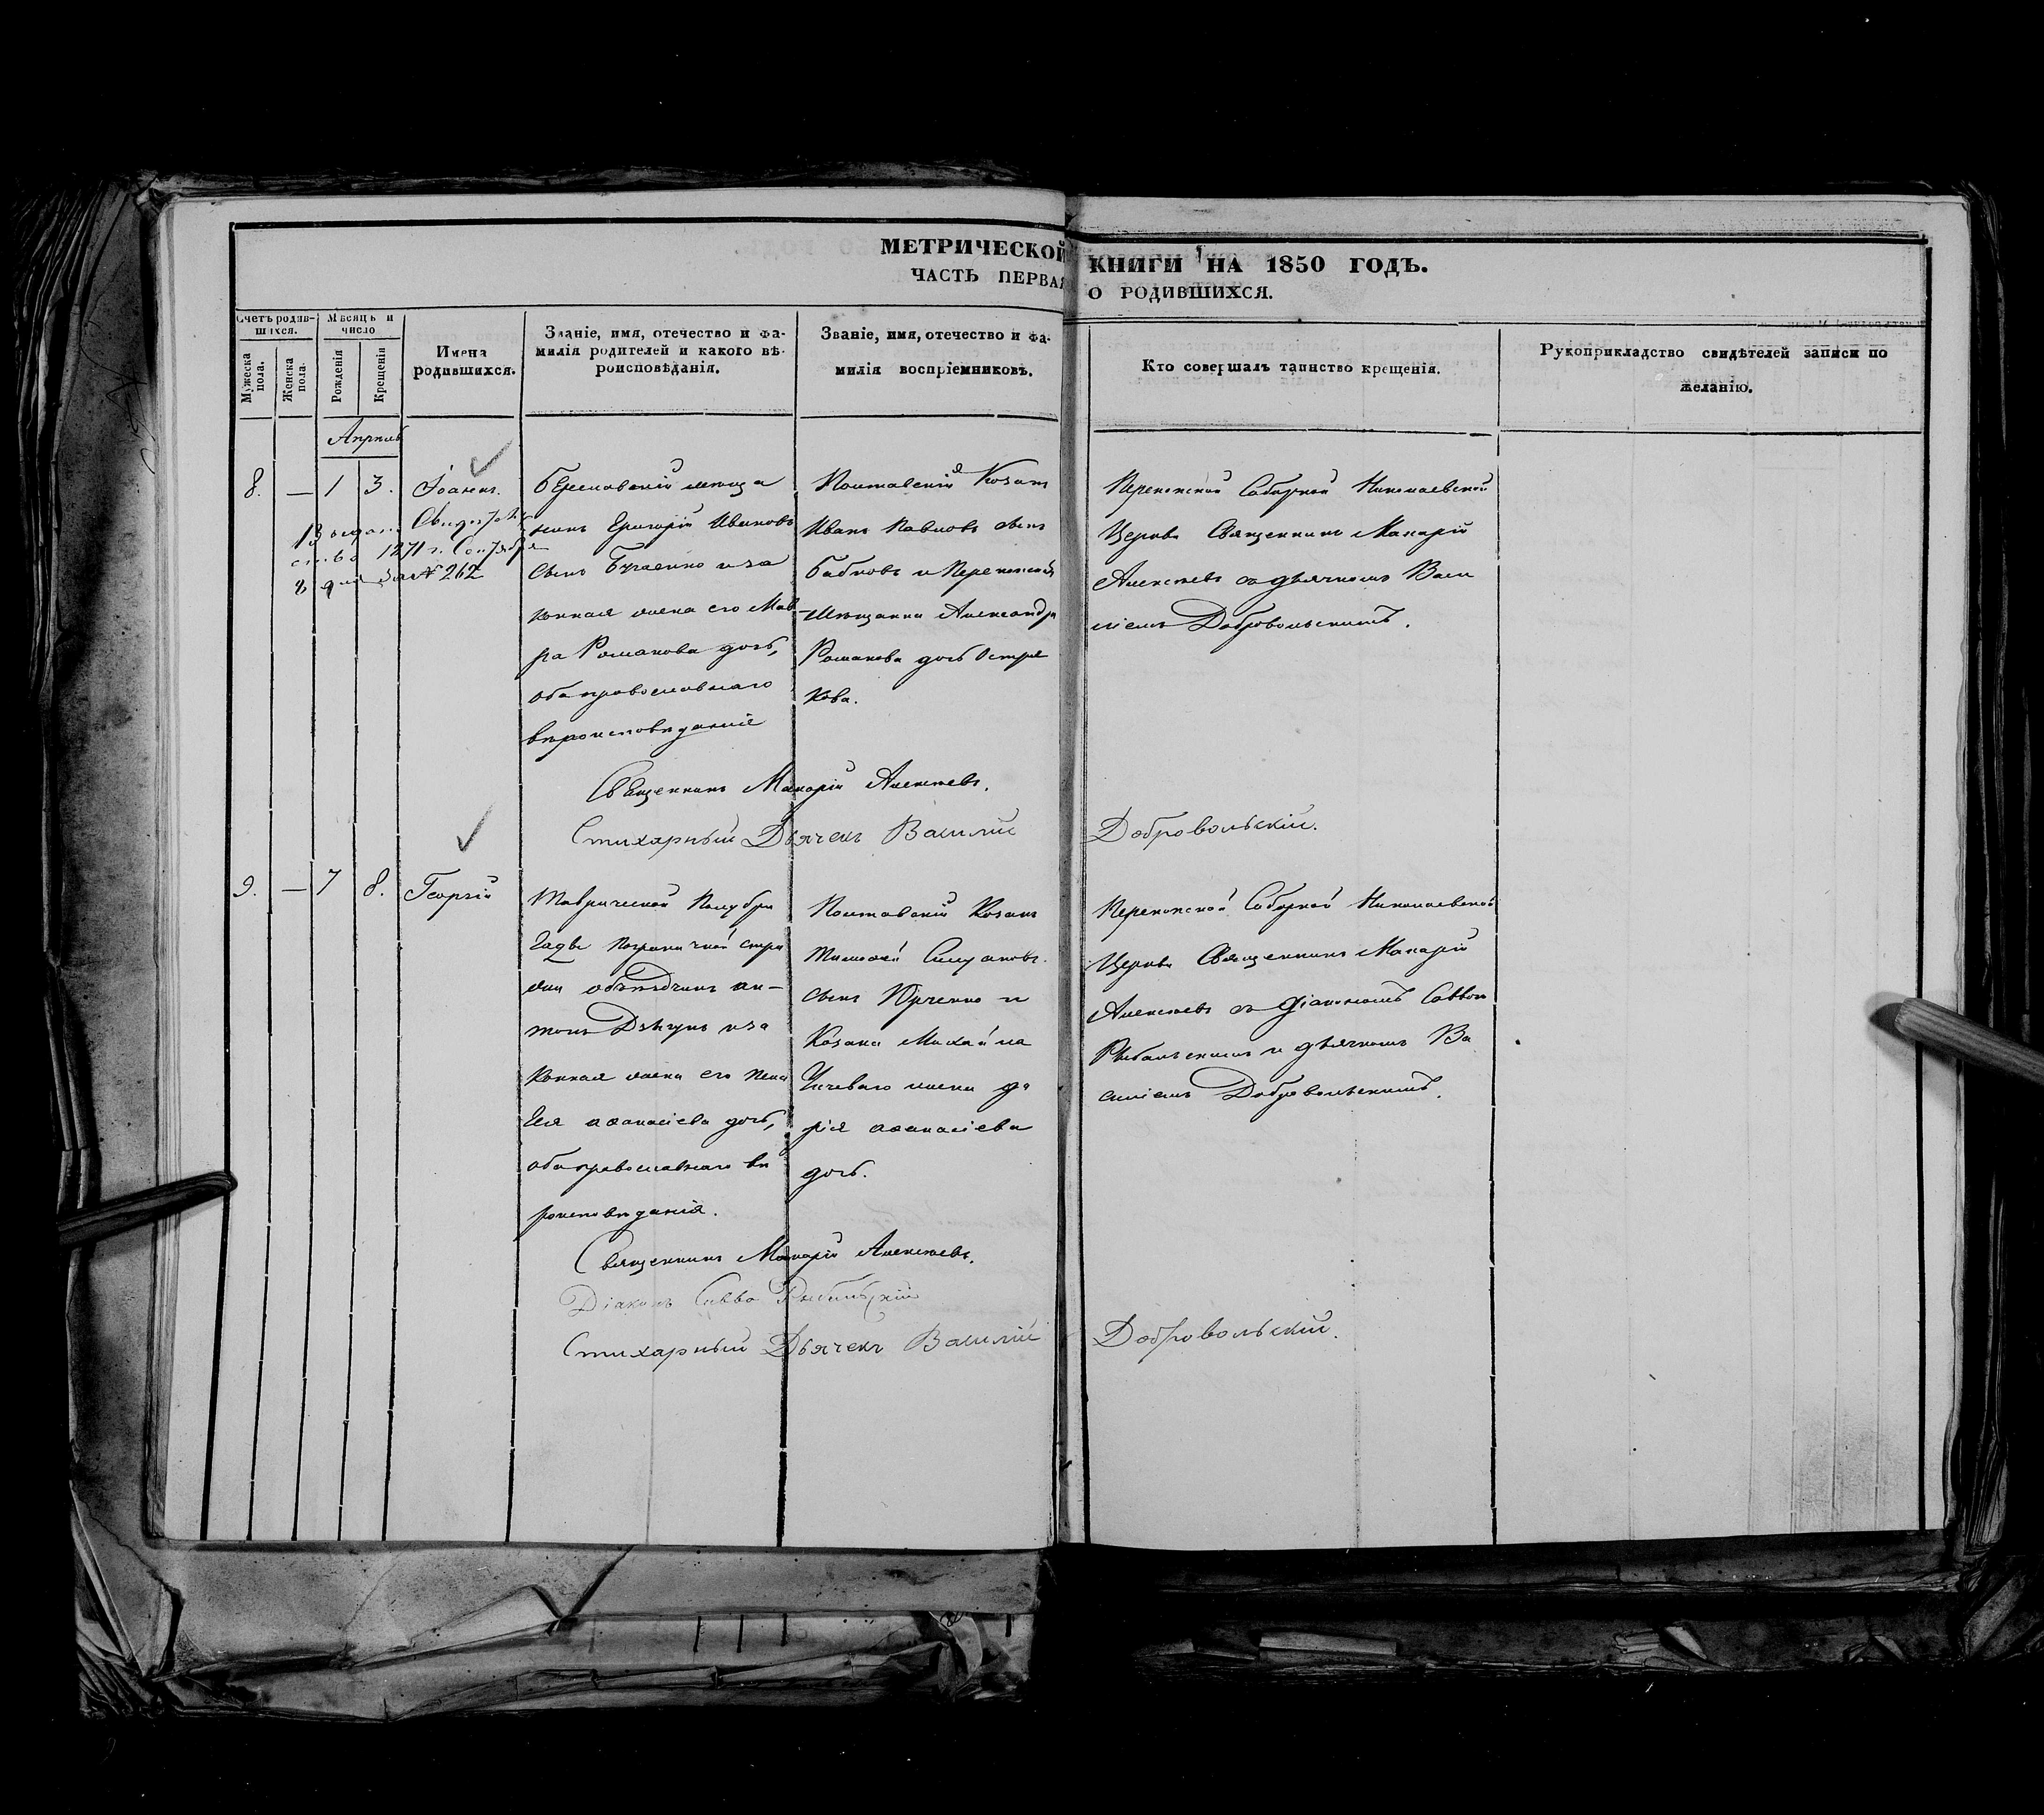 МЕТРИЧЕСКОЙ КНИГИ НА 1850 ГОДЪ.
ЧАСТЬ ПЕРВАЯ О РОДИВШИХСЯ.
Счетъ родив-
шихся.
Мужеска пола.
Женска пола.
Мѣсяцъ и
число
Рожденія
Крещенія
Имена
родившихся.
Званіе, имя, отечество и фа-
милія родителей и какого вѣ-
роисповѣданія.
Званіе, имя, отечество и фа-
милія воспріемниковъ.
Кто совершалъ таинство крещенія.
Рукоприкладство свидѣтелей записи по
желанію.
Апрпль
8. — 1 3. Іоаннъ.
Выдано Свидѣтель
ство 1871 г. Сентября
8 дня за № 262
Береславскій мѣща
нинъ Григорій Ивановъ
сынъ и за
конная жена его Мав
ра Романова дочь,
оба православнаго
вѣроисповѣданія
Полтавскій Козакъ
Иванъ Павловъ сынъ
Бабковъ и Перекопская
Мѣщанка Александра
Романова дочь Остря
кова.
Перекопской Соборной Николаевской
Церкви Священникъ Макарій
Алексѣевъ съ дьячкомъ Васи
ліемъ Добровольскимъ.
Священникъ Макарій Алексѣевъ.
Стихарный Дьячекъ Василій Добровольскій.
9. — 7 8. Георгій
Таврической Полубри
гады пограничной стра
жи объѣздчикъ Ан-
тонъ и за
конная жена его Пела
гея Аѳанасіева дочь,
оба православнаго вѣ
роисповѣданія.
Полтавскій Козакъ
Тимоѳей
сынъ Юрченко и
Козака Михаила
жена Да
рія Аѳанасіева
дочь.
Перекопской Соборной Николаевской
Церкви Священникъ Макарій
Алексѣевъ съ Діакономъ Саввою
Рыбальскимъ и дьячкомъ Ва
силіемъ Добровольскимъ.
Священникъ Макарій Алексѣевъ.
Діаконъ Савва Рыбальскій
Стихарный Дьячекъ Василій Добровольскій.